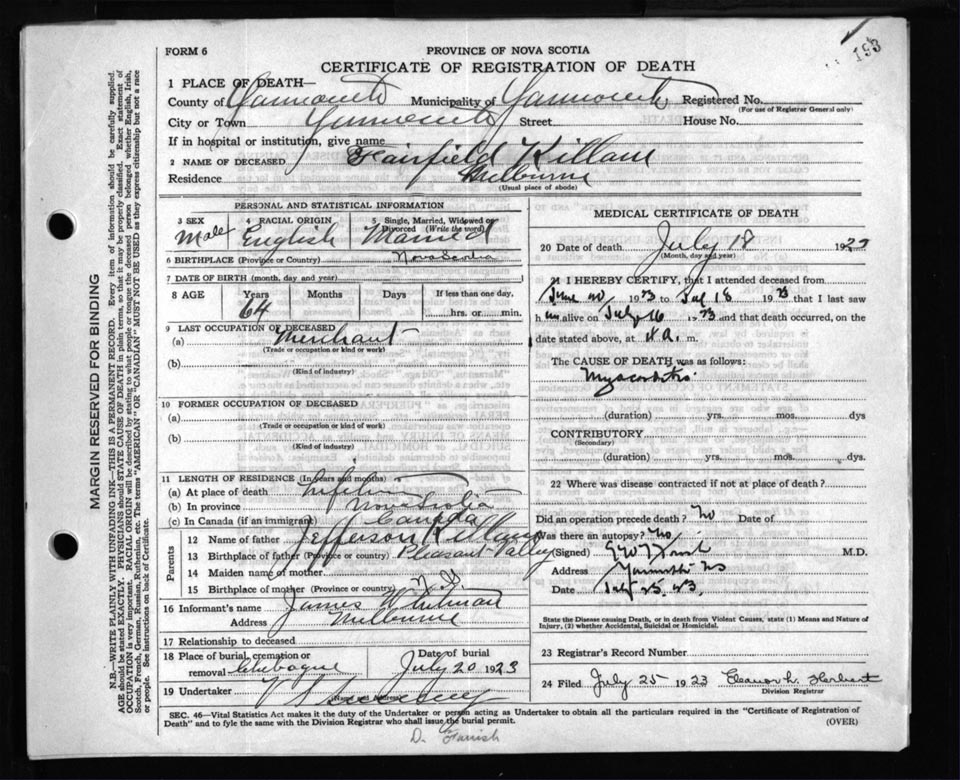 193
FORM 6
PROVINCE OF NOVA SCOTIA
CERTIFICATE OF REGISTRATION OF DEATH
1 PLACE OF DEATH—
County of Yarmouth Municipality of Yarmouth Registered No.
(For use of Registrar General only)
City or Town Yarmouth Street House No.
If in hospital or institution, give name
2 NAME OF DECEASED Fairfield Killam
Residence Melburne
(Usual place of abode)
PERSONAL AND STATISTICAL INFORMATION
3 SEX 4 RACIAL ORIGIN 5 Single, Married, Widowed or Divorced (Write the word)
Male English Married
6 BIRTHPLACE (Province or Country) Nova Scotia
7 DATE OF BIRTH (month, day and year)
8 AGE Years Months Days If less than one day,
64 hrs. or min.
9 LAST OCCUPATION OF DECEASED
(a) Merchant
(Trade or occupation or kind or work)
(b)
(Kind of industry)
10 FORMER OCCUPATION OF DECEASED
(a)
(Trade or occupation or kind or work)
(b)
(Kind of industry)
11 LENGTH OF RESIDENCE (In years and months)
(a) At place of death Lifetime
(b) In province Nova Scotia
(c) In Canada (if an immigrant) Canada
Parents
12 Name of father Jefferson Killam
13 Birthplace of father (Province or country) Pleasant Valley
14 Maiden name of mother
15 Birthplace of mother (Province or country) N.S.
16 Informant's name James Whitman
Address Melburne
17 Relationship to deceased
18 Place of burial, cremation or removal Chebogue Date of burial July 20 1923
19 Undertaker V S Sweeny
MEDICAL CERTIFICATE OF DEATH
20 Date of death July 18 1923
(Month, day and year)
21 I HEREBY CERTIFY, that I attended deceased from
June 1923 to July 18 1923 that I last saw
h im alive on July 16 1923 and that death occurred, on
date stated above, at A. m.
The CAUSE OF DEATH was as follows:
Myocarditis
(duration) yrs. mos. dys
CONTRIBUTORY
(Secondary)
(duration) yrs. mos. dys.
22 Where was disease contracted if not at place of death?
Did an operation precede death? No Date of
Was there an autopsy? No
(Signed) M.D.
Address Yarmouth NS
Date July 25. 23.
State the Disease causing Death, or in death from Violent Causes, state (1) Means and Nature of Injury, (2) whether Accidental, Suicidal or Homicidal.
23 Registrar's Record Number
24 Filed July 25 1923 Eleanor L. Herbert
Division Registrar
SEC. 46—Vital Statistics Act makes it the duty of the Undertaker or person acting as Undertaker to obtain all the particulars required in the "Certificate of Registration of
Death" and to fyle the same with the Division Registrar who shall issue the burial permit. (OVER)
D. Farish
MARGIN RESERVED FOR BINDING
N.B.—WRITE PLAINLY WITH UNFADING INK—THIS IS A PERMANENT RECORD. Every item of information should be carefully supplied.
AGE should be stated EXACTLY. PHYSICIANS should STATE CAUSE OF DEATH in plain terms, so that it may be properly classified. Exact statement of
OCCUPATION is very important. RACIAL ORIGIN will be described by stating to what people or tongue the deceased person belonged whether English, Irish,
Scotch, French, German, Russian, Ruthenian, etc. The terms "AMERICAN" OR "CANADIAN" MUST NOT BE USED as they express citizenship but not a race
or people. See instructions on back of Certificate.